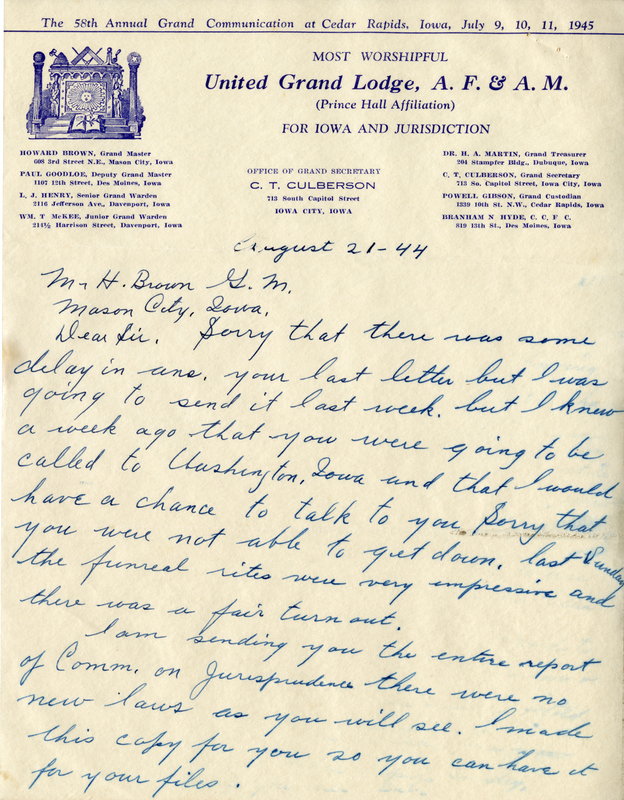 The 58th Annual Grand Communication at Cedar Rapids, Iowa, July 9, 10, 11, 1945
MOST WORSHIPFUL
United Grand Lodge, A. F. & A. M.
(Prince Hall Affiliation)
FOR IOWA AND JURISDICTION
HOWARD BROWN, Grand Master
608 3rd Street N.E., Mason City, Iowa
PAUL GOODLOE, Deputy Grand Master
1107 12th Street, Des Moines, Iowa
L. J. HENRY, Senior Grand Warden
2116 Jefferson Ave., Davenport, Iowa
WM. T McKEE, Junior Grand Warden
214½ Harrison Street, Davenport, Iowa
OFFICE OF GRAND SECRETARY
C. T. CULBERSON
713 South Capitol Street
IOWA CITY, IOWA
DR. H. A. MARTIN, Grand Treasurer
204 Stampfer Bldg., Dubuque, Iowa
C. T. CULBERSON, Grand Secretary
713 So. Capitol Street, Iowa City, Iowa
POWELL GIBSON, Grand Custodian
1339 10th St. N.W., Cedar Rapids, Iowa
BRANHAM N HYDE, C. C. F. C.
819 13th St., Des Moines, Iowa
August 21-44
Mr H. Brown G. M.
Mason City, Iowa.
Dear Sir. Sorry that there was some
delay in ans. your last letter but I was
going to send it last week. but I knew
a week ago that you were going to be
called to Washington, Iowa and that I would
have a chance to talk to you Sorry that
you were not able to get down. last Sunday
the funreal rites were very impressive and
there was a fair turn out.
I am sending you the entire report
of Comm. on Jurisprudence there were no
new laws as you will see. I made
this copy for you so you can have it
for your files.